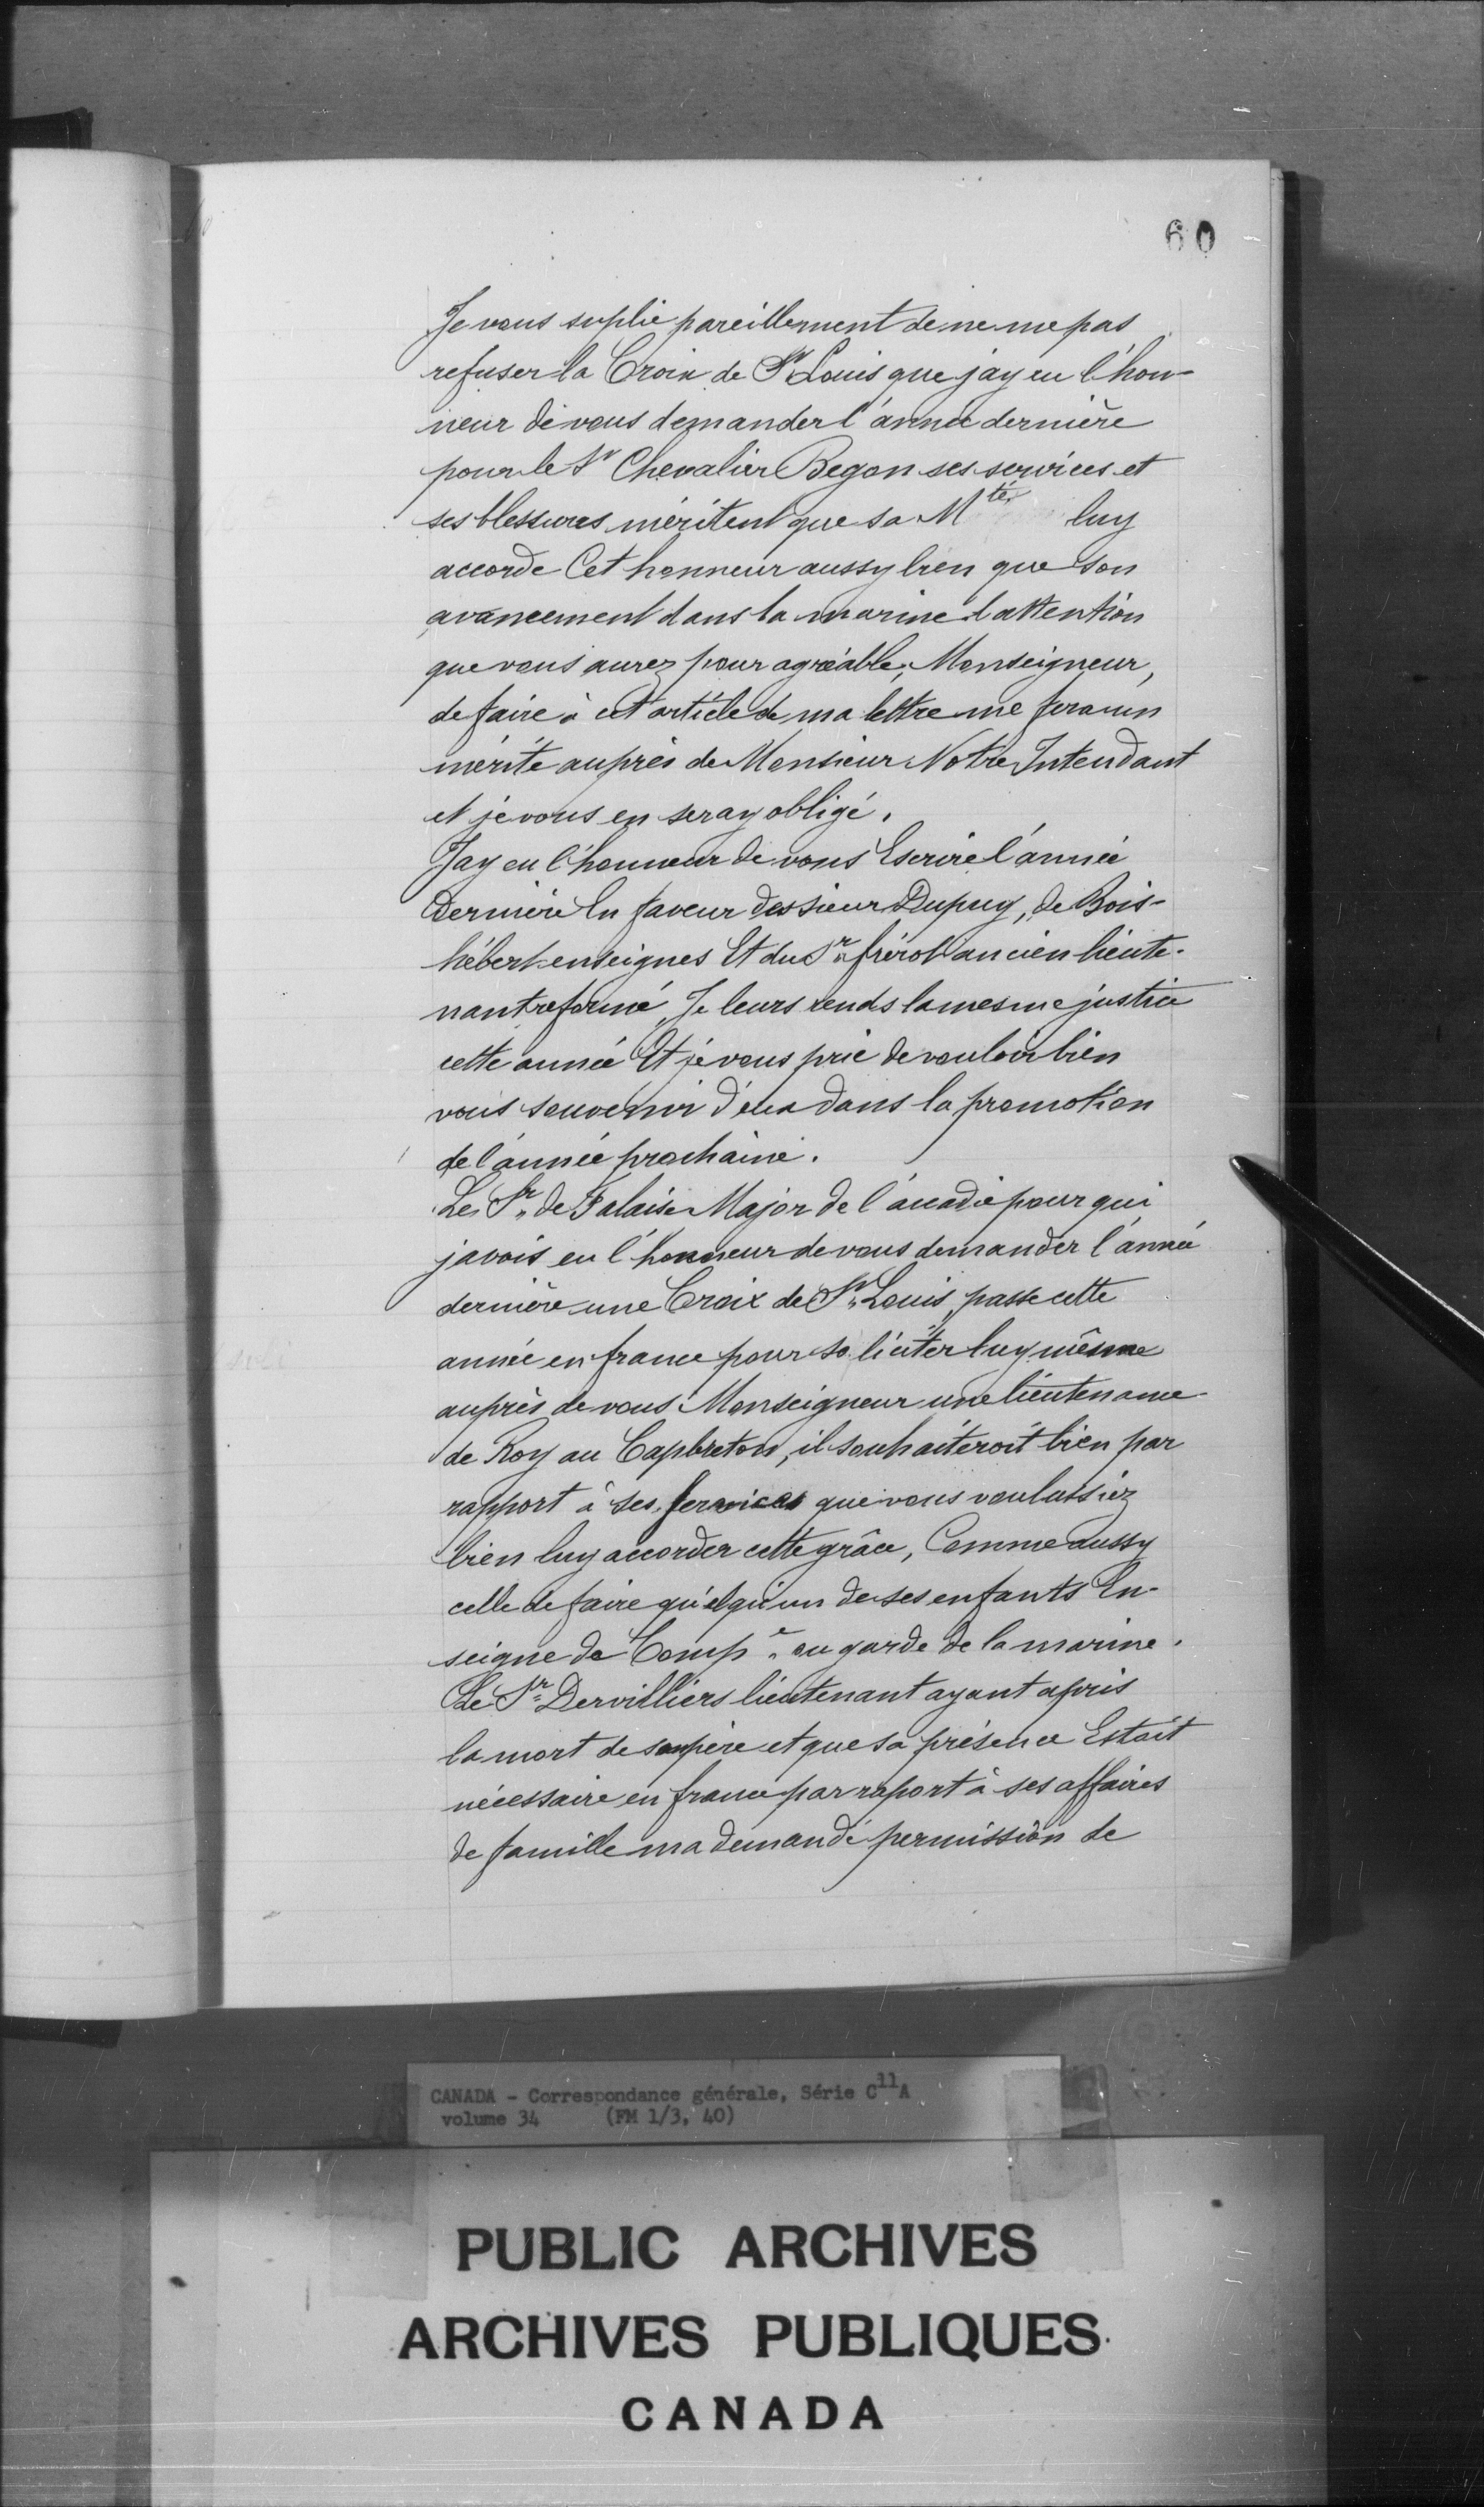 60
Je vous suplie pareillement de ne me pas
refuser la Croix de St Louis que jay eu l'hon-
neur de vous demander l'année dernière
pour le Sr Chevalier Begon ses services et
ses blessures méritent que sa Mté luy
accorde Cet honneur aussy bien que son
avancement dans la marine l'attention
que vous aurez pour agréable, Monseigneur,
de faire à cet article de ma lettre me fera un
mérite auprès de Monsieur Notre Intendant
et je vous en seray obligé.
Jay eu l'honneur de vous Escrire l'année
dernière En faveur des sieur Dupuy, de Bois-
hébert enseignes Et du Sr frérot ancien lieute-
nant reformé, Je leurs rends la mesme justice
cette année Et je vous prie de vouloir bien
vous souvenir d'eux dans la promotion
de l'année prochaine.
Le Sr de Falaise Major de l'acadie pour qui
javois eu l'honneur de vous demander l'année
dernière une Croix de St Louis, passe cette
année en france pour soliciter luy même
auprès de vous Monseigneur une lieutenance
de Roy au Capbreton, il souhaiteroit bien par
rapport à ses services que vous voulussiez
bien luy accorder cette grâce, Comme aussy
celle de faire quelqu'un de ses enfants En-
seigne de Compe ou garde de la marine.
Le Sr Dervilliers lieutenant ayant apris
la mort de son père et que sa présence Estait
nécessaire en france par raport à ses affaires
de famille ma demandé permission de
CANADA - Correspondance générale, Série C11A
volume 34 (FM 1/3, 40)
PUBLIC ARCHIVES
ARCHIVES PUBLIQUES
CANADA